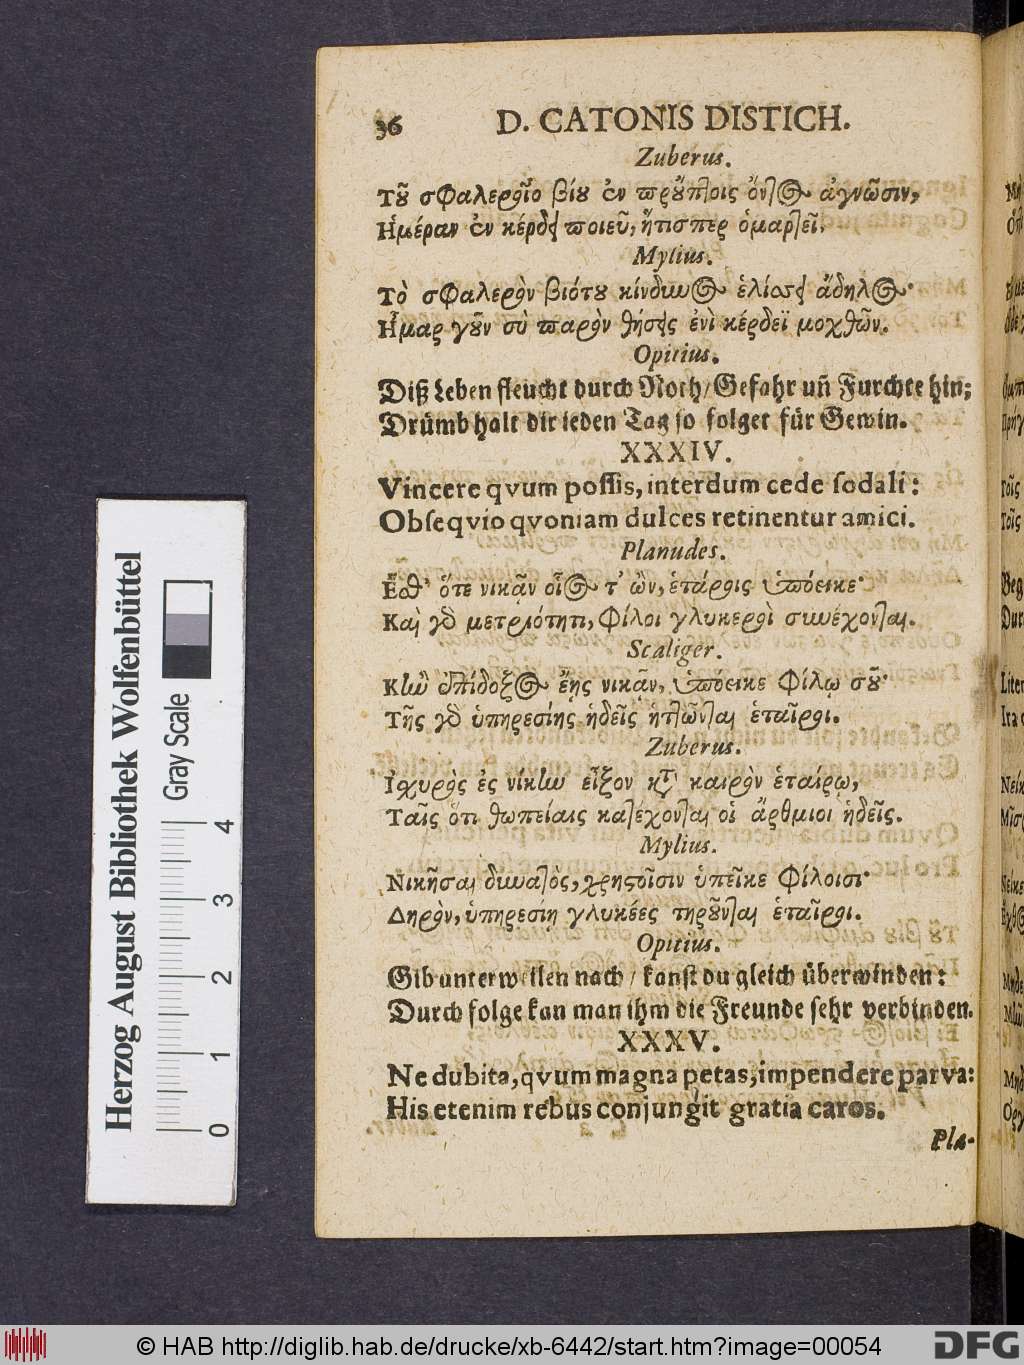 36 D. CATONIS DISTICH.
Zuberus.
Τοῦ σφαλεροῖο βίου ἐν προὔπτοις ὄντος ἀγνῶσιν,
Ἡμέραν ἐν κέρδει ποιεῦ, ἥτισπερ ὁμαρτεῖ.
Mylius.
Τὸ σφαλερὸν βιότου κίνδυνος ἑλίσσει ἄδηλος·
Ἦμαρ γοῦν σὺ παρὸν θήσεις ἐνὶ κέρδεϊ μοχθῶν.
Opitius.
Diß Leben fleucht durch Noth/Gefahr uñ Furchte hin;
Drümb halt dir ieden Tag so folget für Gewin.
XXXIV.
Vincere qvum poſſis, interdum cede ſodali:
Obſeqvio qvoniam dulces retinentur amici.
Planudes.
Ἔσθ' ὅτε νικᾷν οἷος τ' ὢν, ἑτάροις ὑπόεικε·
Καὶ γὸ μετριότητι, φίλοι γλυκεροὶ συνέχονται.
Scaliger.
Κἢν ἐπίδοξος ἔῃς νικᾷν, ὑπόεικε φίλῳ σοῦ·
Τῆς γὸ ὑπηρεσίης ἡδεῖς ἡττῶνται ἑταῖροι.
Zuberus.
Ἰσχυρὸς ἐς νίκην εἶξον κτ καιρὸν ἑταίρῳ,
Ταῖς ὅτι θωπείαις κατέχονται οἱ ἄρθμιοι ἡδεῖς.
Mylius.
Νικῆσαι δυνατὸς, χρηστοῖσιν ὑπεῖκε φίλοισι·
Δηρὸν, ὑπηρεσίῃ γλυκέες τηροῦνται ἑταῖροι.
Opitius.
Gib unterweilen nach / kanst du gleich überwinden:
Durch folge kan man ihm die Freunde sehr verbinden.
XXXV.
Ne dubita, qvum magna petas, impendere parva:
His etenim rebus conjungit gratia caros.
Pla-
Herzog August Bibliothek Wolfenbüttel
Gray Scale
0 1 2 3 4
© HAB http://diglib.hab.de/drucke/xb-6442/start.htm?image=00054
DFG